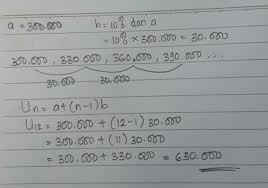 a = 300.000 b = 10% dari a
= 10% × 300.000 = 30.000
300.000, 330.000, 360.000, 390.000 ...
30.000 30.000
Un = a + (n-1) b
U12 = 300.000 + (12-1) 30.000
= 300.000 + (11) 30.000
= 300.000 + 330.000 = 630.000